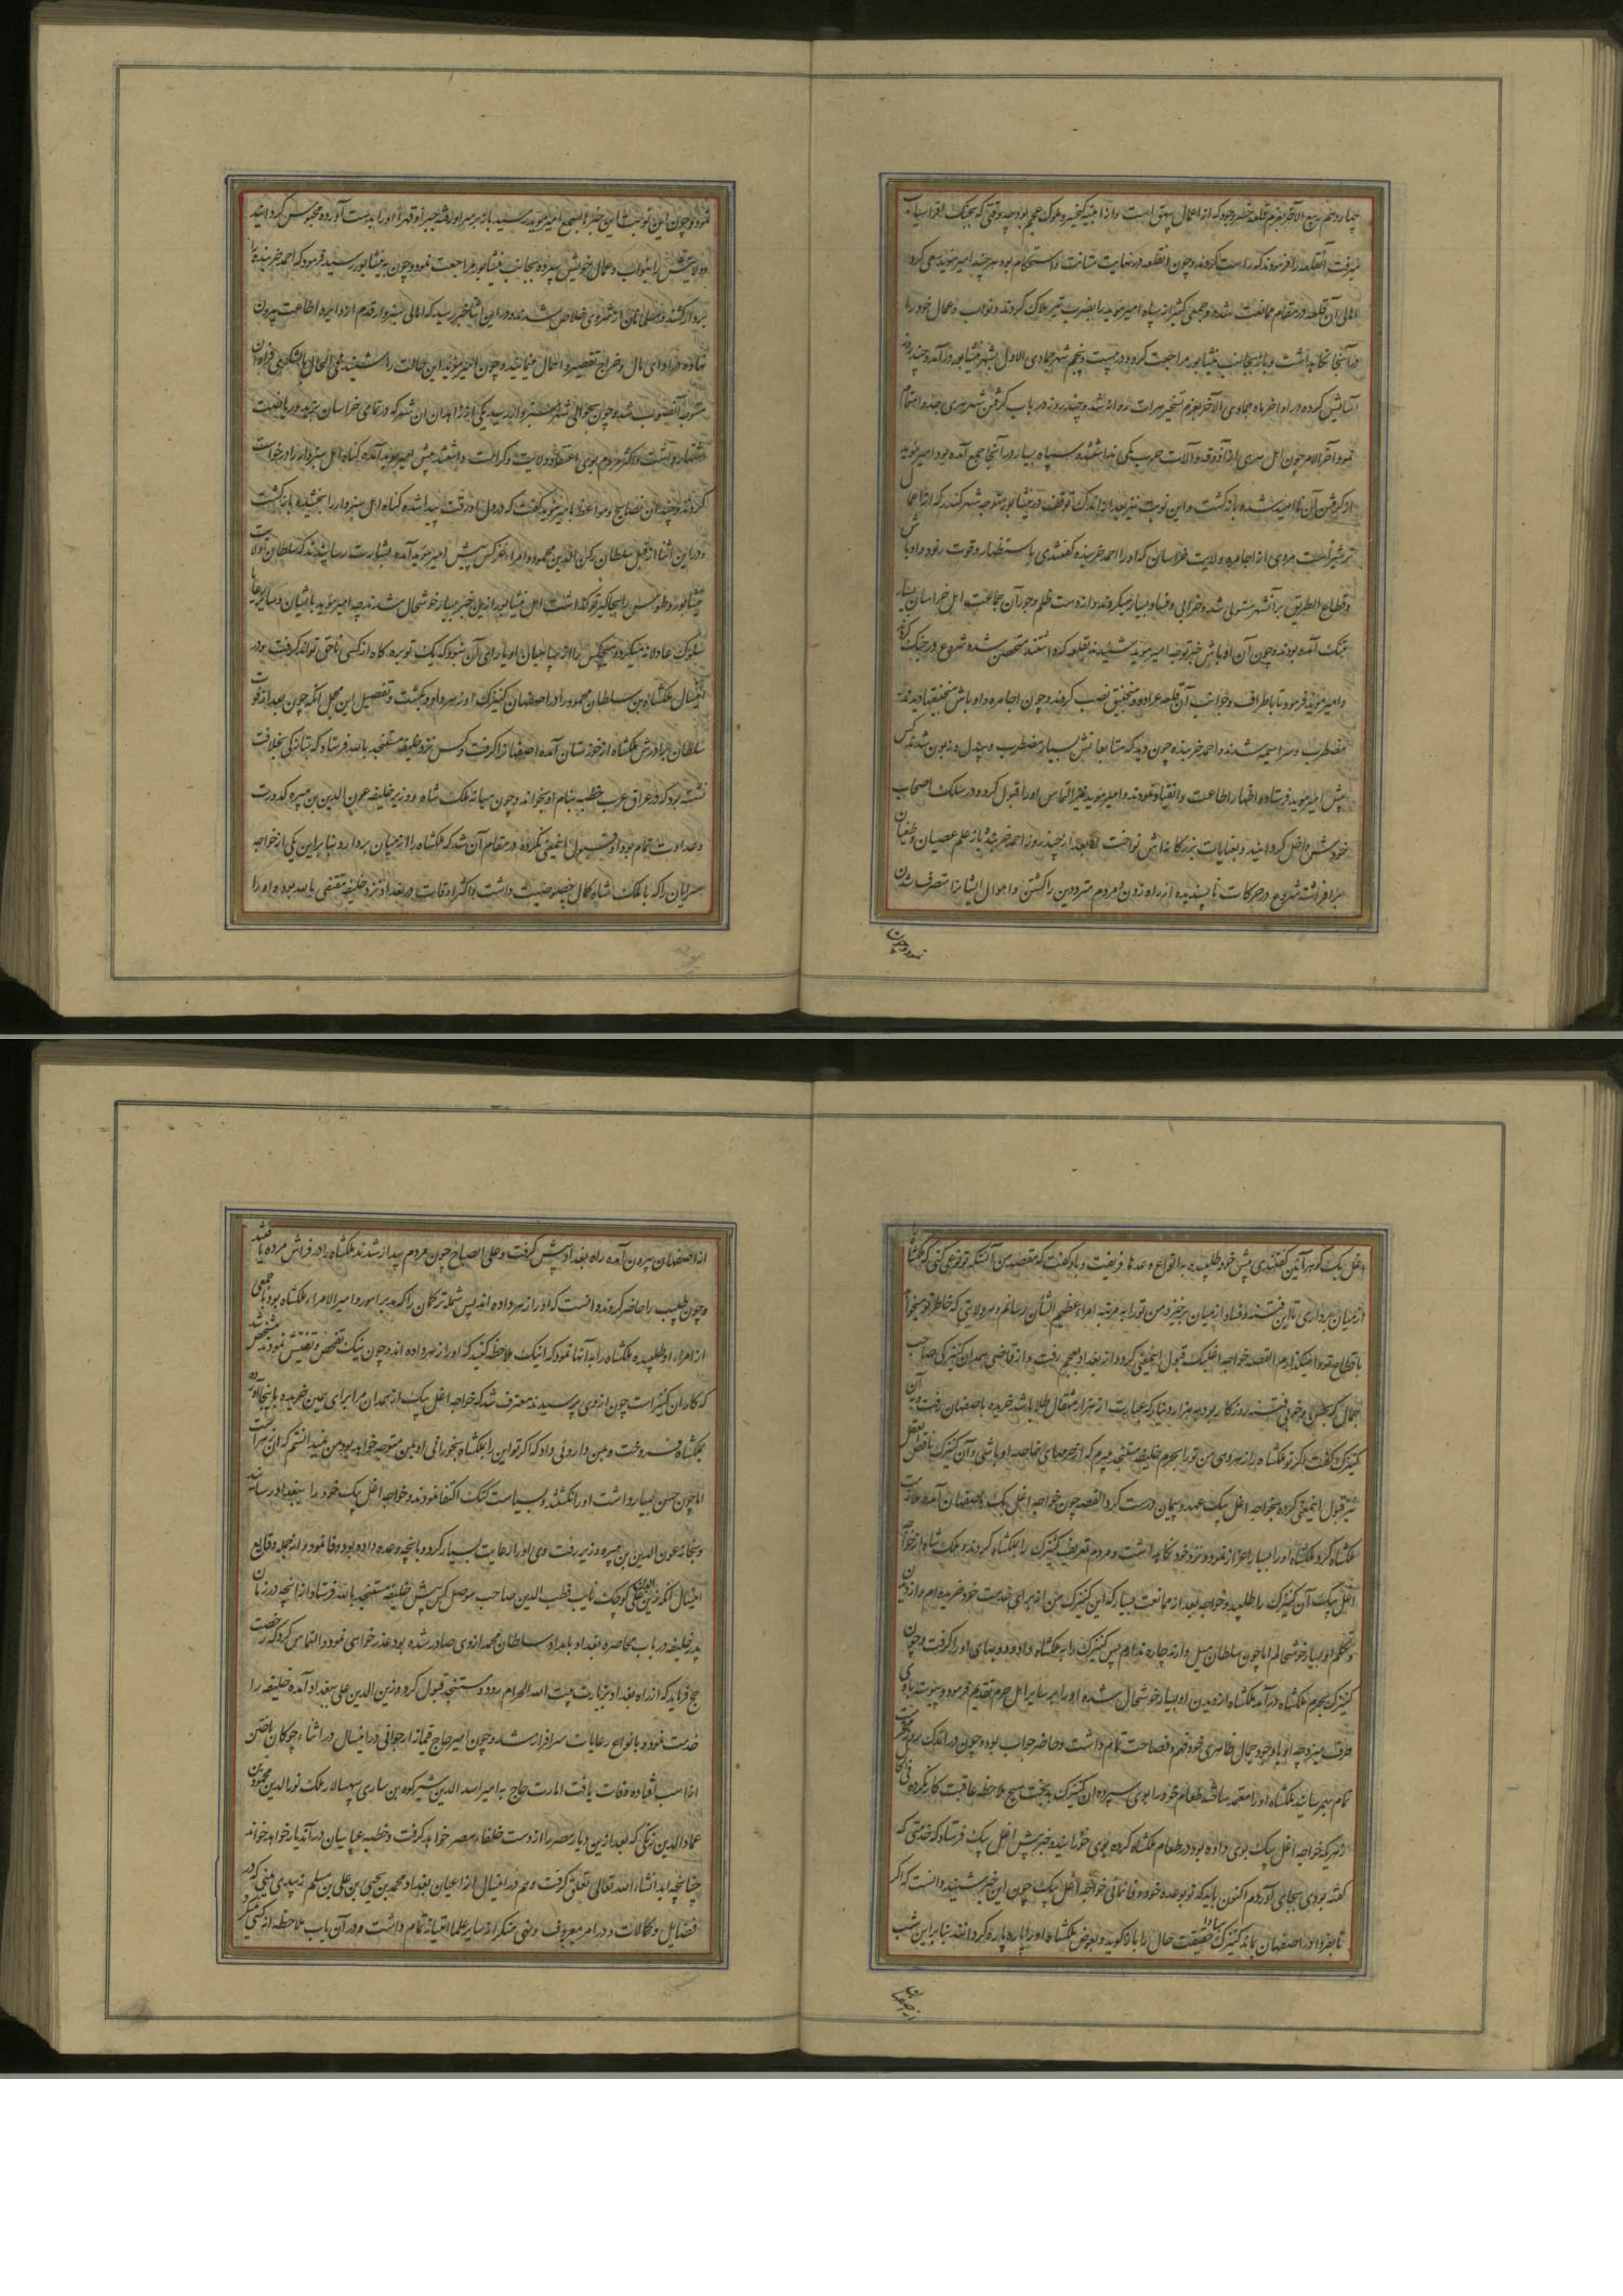 چهاردهم ربیع الآخر بعزم قلعه خسروجرد که از اعمال بیهق است و از ابنیه کیخسرو ملوک عجم بود چه وقتی که بجنک افراسیاب
میرفت آنقلعه را فرمود که راست کردند و چون آنقلعه در نهایت متانت و استحکام بود هر چند امیر موید سعی کرد
اهالی آن قلعه در مقام ممانعت شده جمعی کثیر از سپاه امیر موید را بضرب تیر هلاک کردند و نواب و عمال خود را
در آنجا نکاهداشت و باز بجانب نیشابور مراجعت کرد و در بیست و پنجم شهر جمادی الاول بشهر نیشابور درآمد و چند روز
آسایش کرده در اواخر ماه جمادی الآخر بعزم تسخیر هرات روانه شد و چند روز در باب کرفتن شهر هری جد و اهتمام
نمود و آخر الامر چون اهل هری را از آذوقه و آلات حرب کمی نداشتند و سپاه بسیار در آنجا جمع آمده بود امیر موید
از کرفتن آن ناامید شده بازکشت و این نوبت نیز بعد از اندک توقف در نیشابور متوجه شهر کندر که از اعمال
ترشیز است مردی از اجامره ولایت خراسان که او را احمد خربنده کفتندی باستظهار و قوت رنود و اوباش
و قطاع الطریق بر آنشهر مستولی شده و خرابی و فساد بسیار میکردند و از دست ظلم و جور آن جماعت اهل خراسان بسیار
بتنک آمده بودند و چون آن اوباش خبر توجه امیر موید شنیدند بقلعه که داشتند متحصن شده شروع در جنک کردند
و امیر موید فرمود تا باطراف و جوانب آن قلعه عراده و منجنیق نصب کردند و چون اجامره و اوباش منجنیقها دیدند
مضطرب و سراسیمه شدند و احمد خربنده چون دید که متابعانش بسیار مضطرب و بیدل و زبون شدند کس
پیش امیر موید فرستاده اظهار اطاعت و انقیاد نمودند و امیر موید نیز التماس او را قبول کرده در سلک اصحاب
خودش داخل کردانید و بعنایات بزرکانه اش نواخت اما بعد از چند روز احمد خربنده باز علم عصیان و طغیان
برافراشته شروع در حرکات ناپسندیده از راه زدن و مردم مترددین را کشتن و اموال ایشانرا متصرف شدن
نمود و چون
نمود و چون این نوبت این خبرها بسمع امیر موید رسید باز بر سر او رفته جبرا و قهرا او را بدست آورده محبوس کردانید
و ولایتش را بنواب و عمال خویش سپرده بجانب نیشابور مراجعت نمود و چون به نیشابور رسید فرمود که احمد خربنده را
بردار کشند و مسلمانان از شر وی خلاص شدند و در این اثنا خبر رسید که اهالی سبزوار قدم از دایره اطاعت بیرون
نهاده در ادای مال و خراج تقصیر و اهمال مینمایند و چون امیر موید این حالت را شنید فی الحال با لشکری فراوان
متوجه آنصوب شد و چون بحوالی شهر سبزوار رسید یکی از زاهدان آن شهر که در تمامی خراسان بزهد و ریاضت
اشتهار داشت و اکثر مردم بوی اعتقاد ولایت و کرامت داشتند پیش امیر موید آمده کناه اهل سبزوار را درخواست
کرد و چندان نصایح و مواعظ با امیر موید کفت که در دل او رقت پیدا شده کناه اهل سبزوار را بخشیده بازکشت
و در این اثنا از قبل سلطان رکن الدین محمود و امراء غز کس پیش امیر موید آمده بشارت رسانیدند که سلطان ولایت
نیشابور و طوس را بجاکیر تو کذاشت اهل نیشابور از این خبر بسیار خوشحال شدند چه امیر موید با ایشان و سایر رعایا
سلوک عادلانه میکرد و هیچکس را از سپاهیان او یارای آن نبود که یک توبره کاه از کسی ناحق تواند کرفت و در
اینسال ملکشاه بن سلطان محمود را در اصفهان کنیزک او زهر داد و بکشت و تفصیل این مجمل آنکه چون بعد از فوت
سلطان برادرش ملکشاه از خوزستان آمده اصفهانرا کرفت و کس نزد خلیفه مستنجد بالله فرستاد که بتازکی بخلافت
نشسته بود که در عراق عرب خطبه بنام او بخواند و چون میانه ملک شاه و وزیر خلیفه عون الدین بن هبیره کدورت
و عداوت تمام بود او قبول اینمعنی نکرده در مقام آن شد که ملکشاه را از میان بردارد و بنابراین یکی از خواجه
سرایان را که با ملک شاه کمال خصوصیت داشت و اکثر اوقات در بغداد نزد خلیفه مقتفی بالله بود و او را
اغل بیک کوهرآئین کفتندی پیش خود طلبیده به انواع وعدها فریفت و باو کفت که مقصد من آنستکه تو نوعی کنی که ملکشاه
از میان برداری تا این فتنه و فساد از میان برخیزد و من تو را به مرتبه امراء عظیم الشان رسانم و هر ولایتی که خاطر تو میخواهد
باقطاع بتو وا میکذارم القصه خواجه اغلبک قبول اینمعنی کرد و از بغداد بعجم رفت و از قاضی همدان کنیزکی صاحب
جمال که بطنازی و خوبی فتنه روزکار بود به هزار دینار که عبارت از هزار مثقال طلا باشد خریده باصفهان رفت و به آن
کنیزک کفت اکر تو ملکشاه را زهر دهی من تو را بحرم خلیفه مستنجد میبرم که از حرمهای خاصه او باشی و آن کنیزک ناقص العقل
نیز قبول اینمعنی کرده بخواجه اغل بیک عهد و پیمان درست کرد القصه چون خواجه اغل بک باصفهان آمد ملازمت
ملکشاه کرد و ملکشاه او را بسیار اعزاز نمود و نزد خود نکاهداشت و مردم تعریف کنیزک را بملکشاه کردند و ملک شاه از خواجه
اغل بیک آن کنیزک را طلبید و خواجه بعد از ممانعت بسیار که این کنیزک من از برای خدمت خود خریده ام و از دیدن
و تکلم او بسیار خوشحالم اما چون سلطان میل دارند چاره ندارم پس کنیزک را به ملکشاه داد و بهای او را کرفت و چون
کنیزک بحرم ملکشاه درآمد ملکشاه از دیدن او بسیار خوشحال شده او را بر سایر اهل حرم تقدم فرمود و پیوسته با وی
طرف میزد چه او با وجود جمال ظاهری خود فهم و فصاحت تمام داشت و حاضر جواب بود و چون در اندک روز محرمیت
تمام بهم رسانید ملکشاه او را معتمد ساخته طعام خود را بوی سپرد و آن کنیزک بدبخت هیچ ملاحظه عاقبت کار نکرده فی الحال
زهریکه خواجه اغل بیک بوی داده بود در طعام ملکشاه کرده بوی خورانید و خبر پیش اغل بیک فرستاد که خدمتی که
کفته بودی بجای آوردم اکنون باید که تو بوعده خود وفا نمائی خواجه اغل بیک چون این خبر شنید دانست که اکر
تا بفردا در اصفهان بماند کنیزک مبادا حقیقت حال را باز کوید و بعوض ملکشاه او را پاره پاره کردانند بنابراین شب
از اصفهان
از اصفهان بیرون آمده راه بغداد پیش کرفت و علی الصباح چون مردم بیدار شدند ملکشاه را در فراش مرده یافتند
و چون طبیب را حاضر کردند دانست که او را زهر داده اند پس شمله ترکمان را که مدبر امور و امیر الامراء ملکشاه بود با جمعی
از امراء او طلبیده ملکشاه را به آنها نمود که اینک ملاحظه کنید که او را زهر داده اند و چون نیک تفحص و تفتیش نمودند مشخص شد
که کار آن کنیز است چون از وی پرسیدند معترف شد که خواجه اغل بیک از همدان مرا برای همین خریده باینجا آورده
بملکشاه فروخت و بمن داروئی داد که اکر تو این را بملکشاه بخورانی او بمن متوجه خواهد بود من نمیدانستم که آن زهر است
اما چون حسن بسیار داشت او را نکشتند و بسیاست کتک اکتفا نمودند و خواجه اغل بیک خود را ببغداد رسانید
و بخانه عون الدین بن هبیره وزیر رفت وی او را رعایت بسیار کرد و بآنچه وعده داده بود وفا نمود و از جمله وقایع
اینسال آنکه زین الدین علی کوچک نایب قطب الدین صاحب موصل کس پیش خلیفه مستنجد بالله فرستاد از آنچه در زمان
پدر خلیفه در باب محاصره بغداد بامداد سلطان محمد از وی صادر شده بود عذر خواهی نمود و التماس کرد که رخصت
حج فرماید که از راه بغداد بزیارت بیت الله الحرام رود و مستنجد قبول کرد و زین الدین علی ببغداد آمده خلیفه را
خدمت نمود و بانواع رعایات سرافراز شد و چون امیر حاج قیماز ارجوانی در اینسال در اثناء چوکان باختن
از اسب افتاده وفات یافت امارت حاج به امیر اسد الدین شیرکوه بن شاری سپهسالار ملک نور الدین محمود بن
عماد الدین زنکی که بعد از این دیار مصر را از دست خلفاء مصر خواهد کرفت و خطبه عباسیان در آندیار خواهد خواند
چنانچه بیاید انشاء الله تعالی تعلق کرفت و هم در اینسال از اعیان بغداد محمد بن یحیی بن علی بن مسلم زبیدی یمنی که در
فضایل و کمالات و در امر معروف و نهی منکر از سایر علما امتیاز تمام داشت و در آن باب ملاحظه از کسی نمیکرد